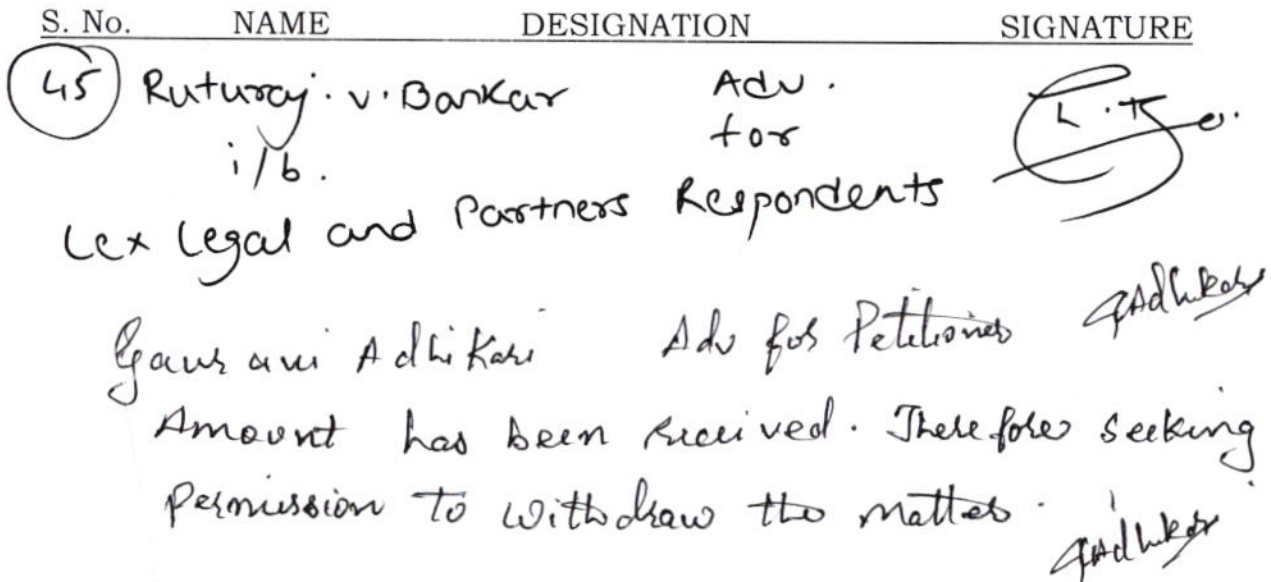 S. No. NAME DESIGNATION SIGNATURE
45 Ruturaj. v. Bankar Adv.
i/b. for
Lex Legal and Partners Respondents
Gauravi Adhikari Adv for Petitioner GAdhikari
Amount has been received. Therefore seeking
Permission to withdraw the matter.
GAdhikari